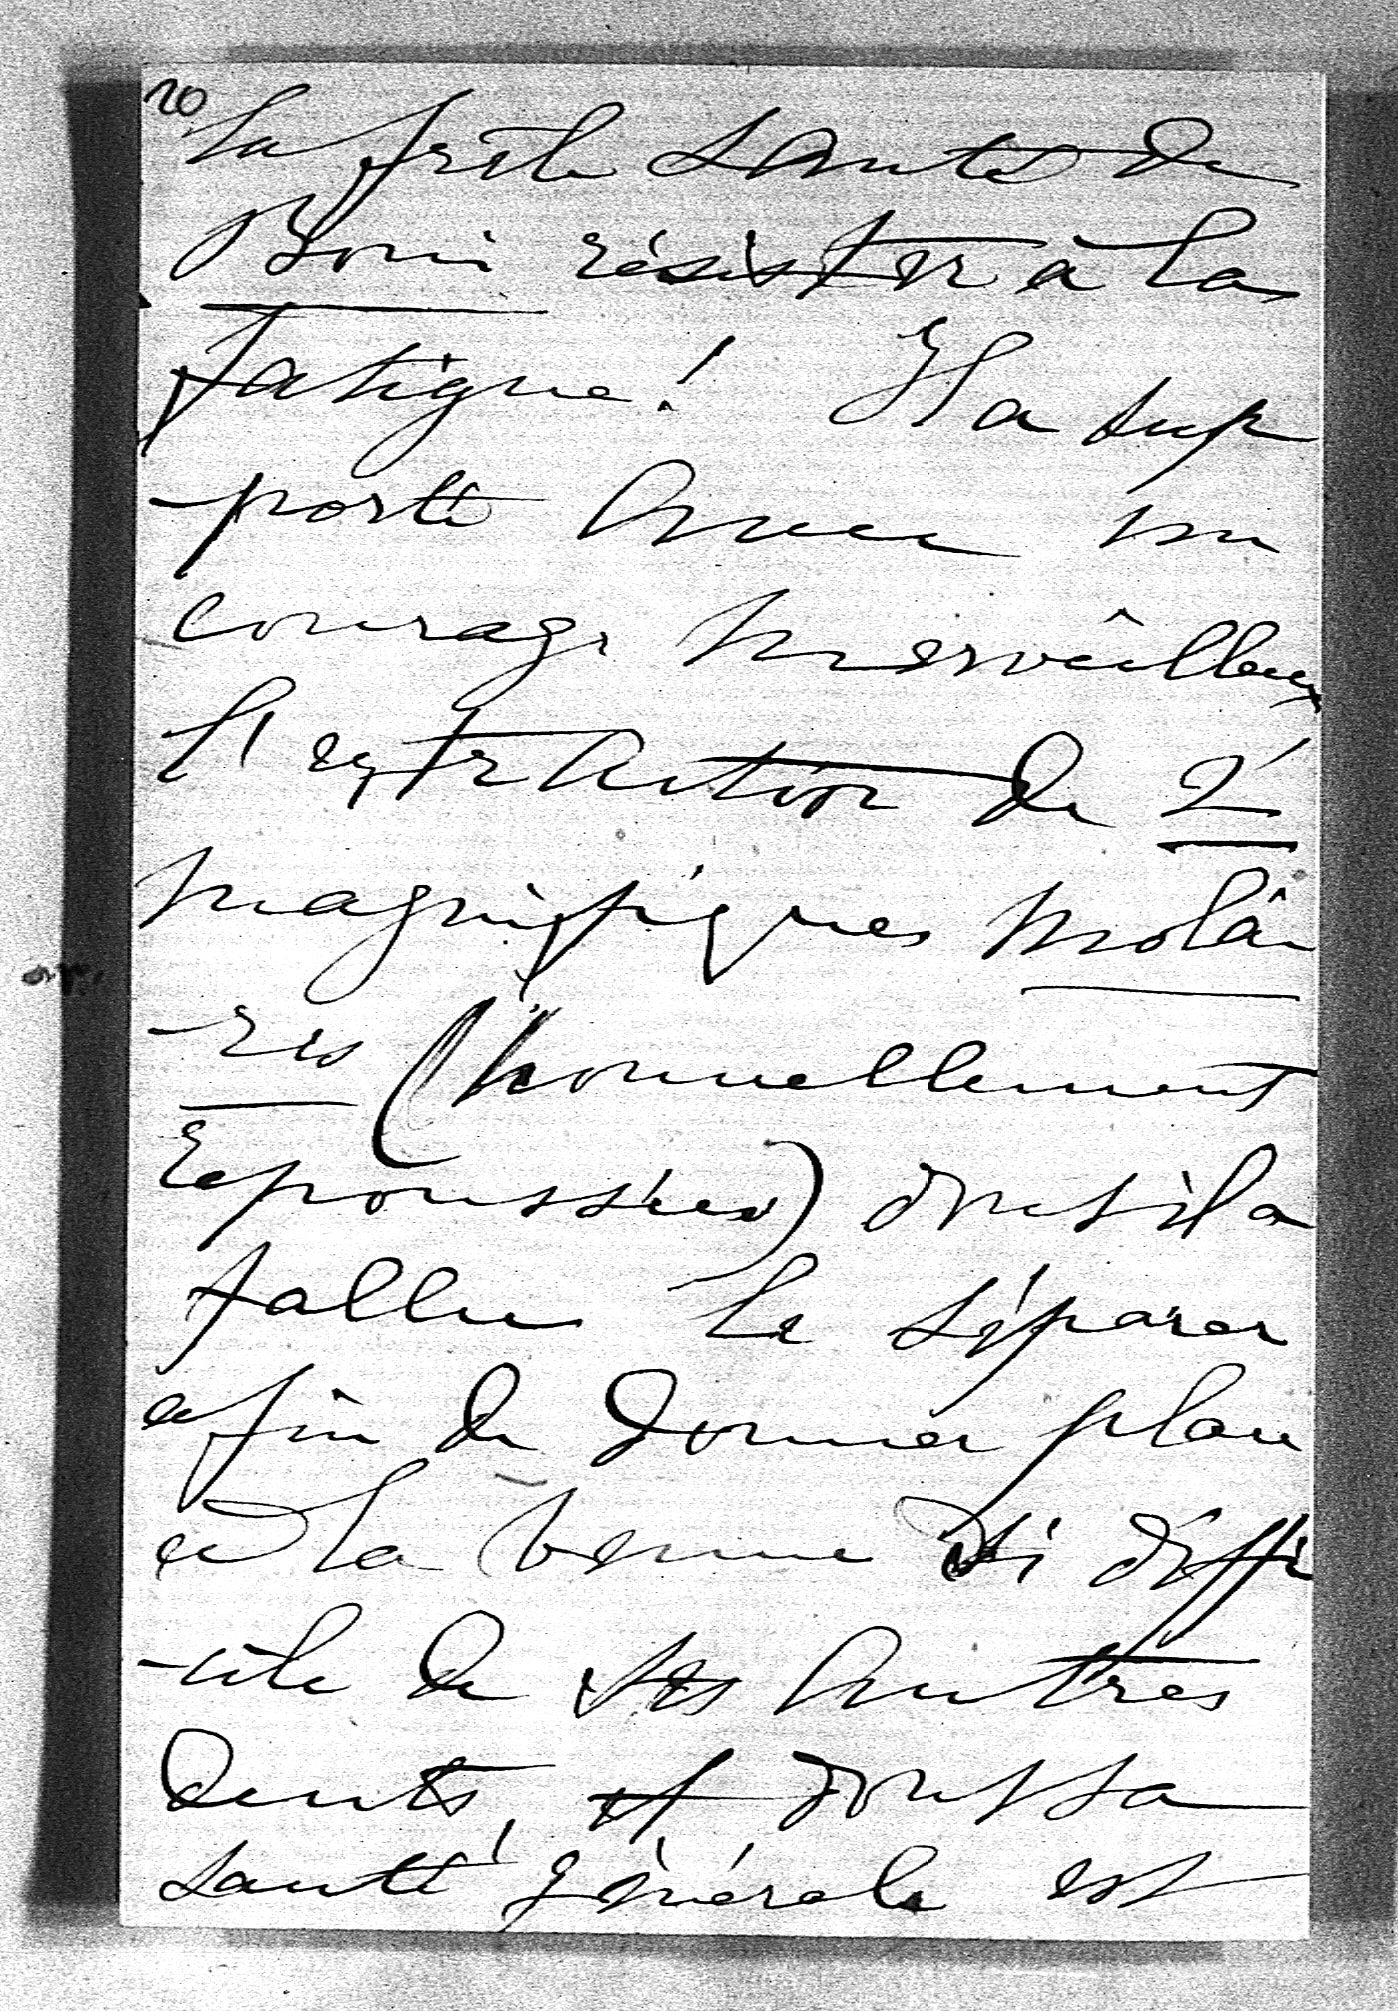 20
la frêle santé de
Boni résister à la
fatigue! Il a sup
-porté avec un
courage merveilleux
l'extraction de 2
magnifiques molai
-res (nouvellement
repoussées) dont il a
fallu le séparer
afin de donner place
à la venue si diffi
-cile de ses autres
dents, et dont sa
santé générale est